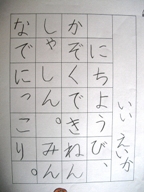 いい えいが
にちようび、
かぞくできねん
しゃしん。みん
なでにっこり。